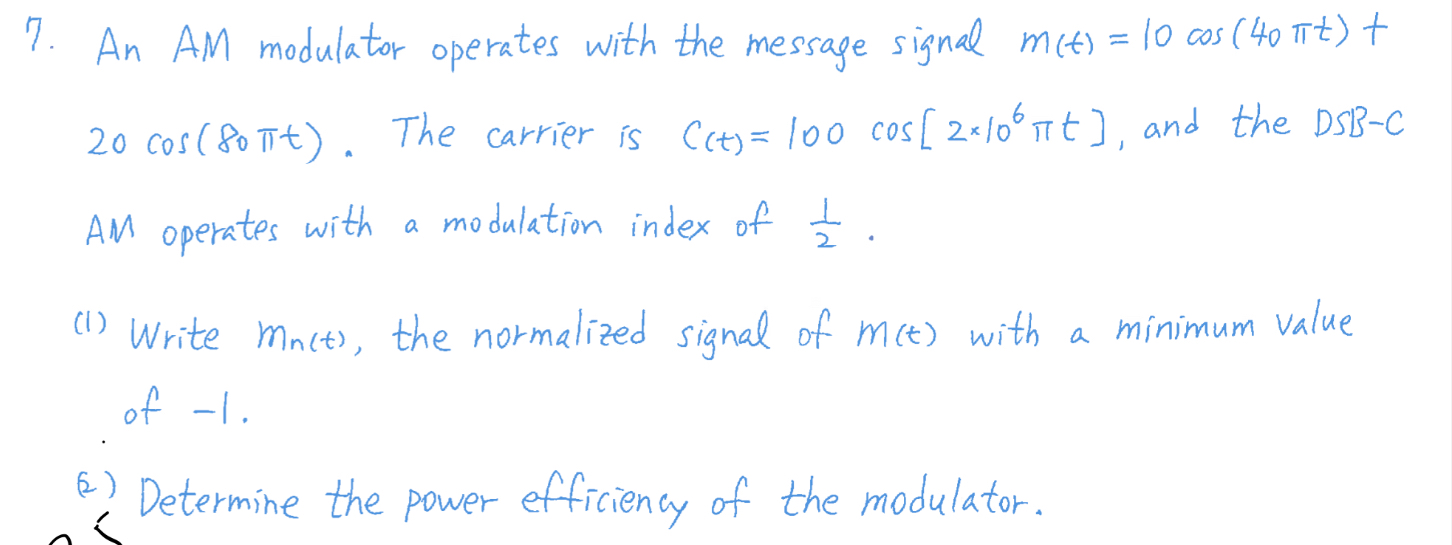 7. An AM modulator operates with the message signal m(t) = 10 cos(40πt) +
20 cos(80πt). The carrier is C(t) = 100 cos[2×10⁶πt], and the DSB-C
AM operates with a modulation index of 1/2.
(1) Write mn(t), the normalized signal of m(t) with a minimum value
of -1.
(2) Determine the power efficiency of the modulator.